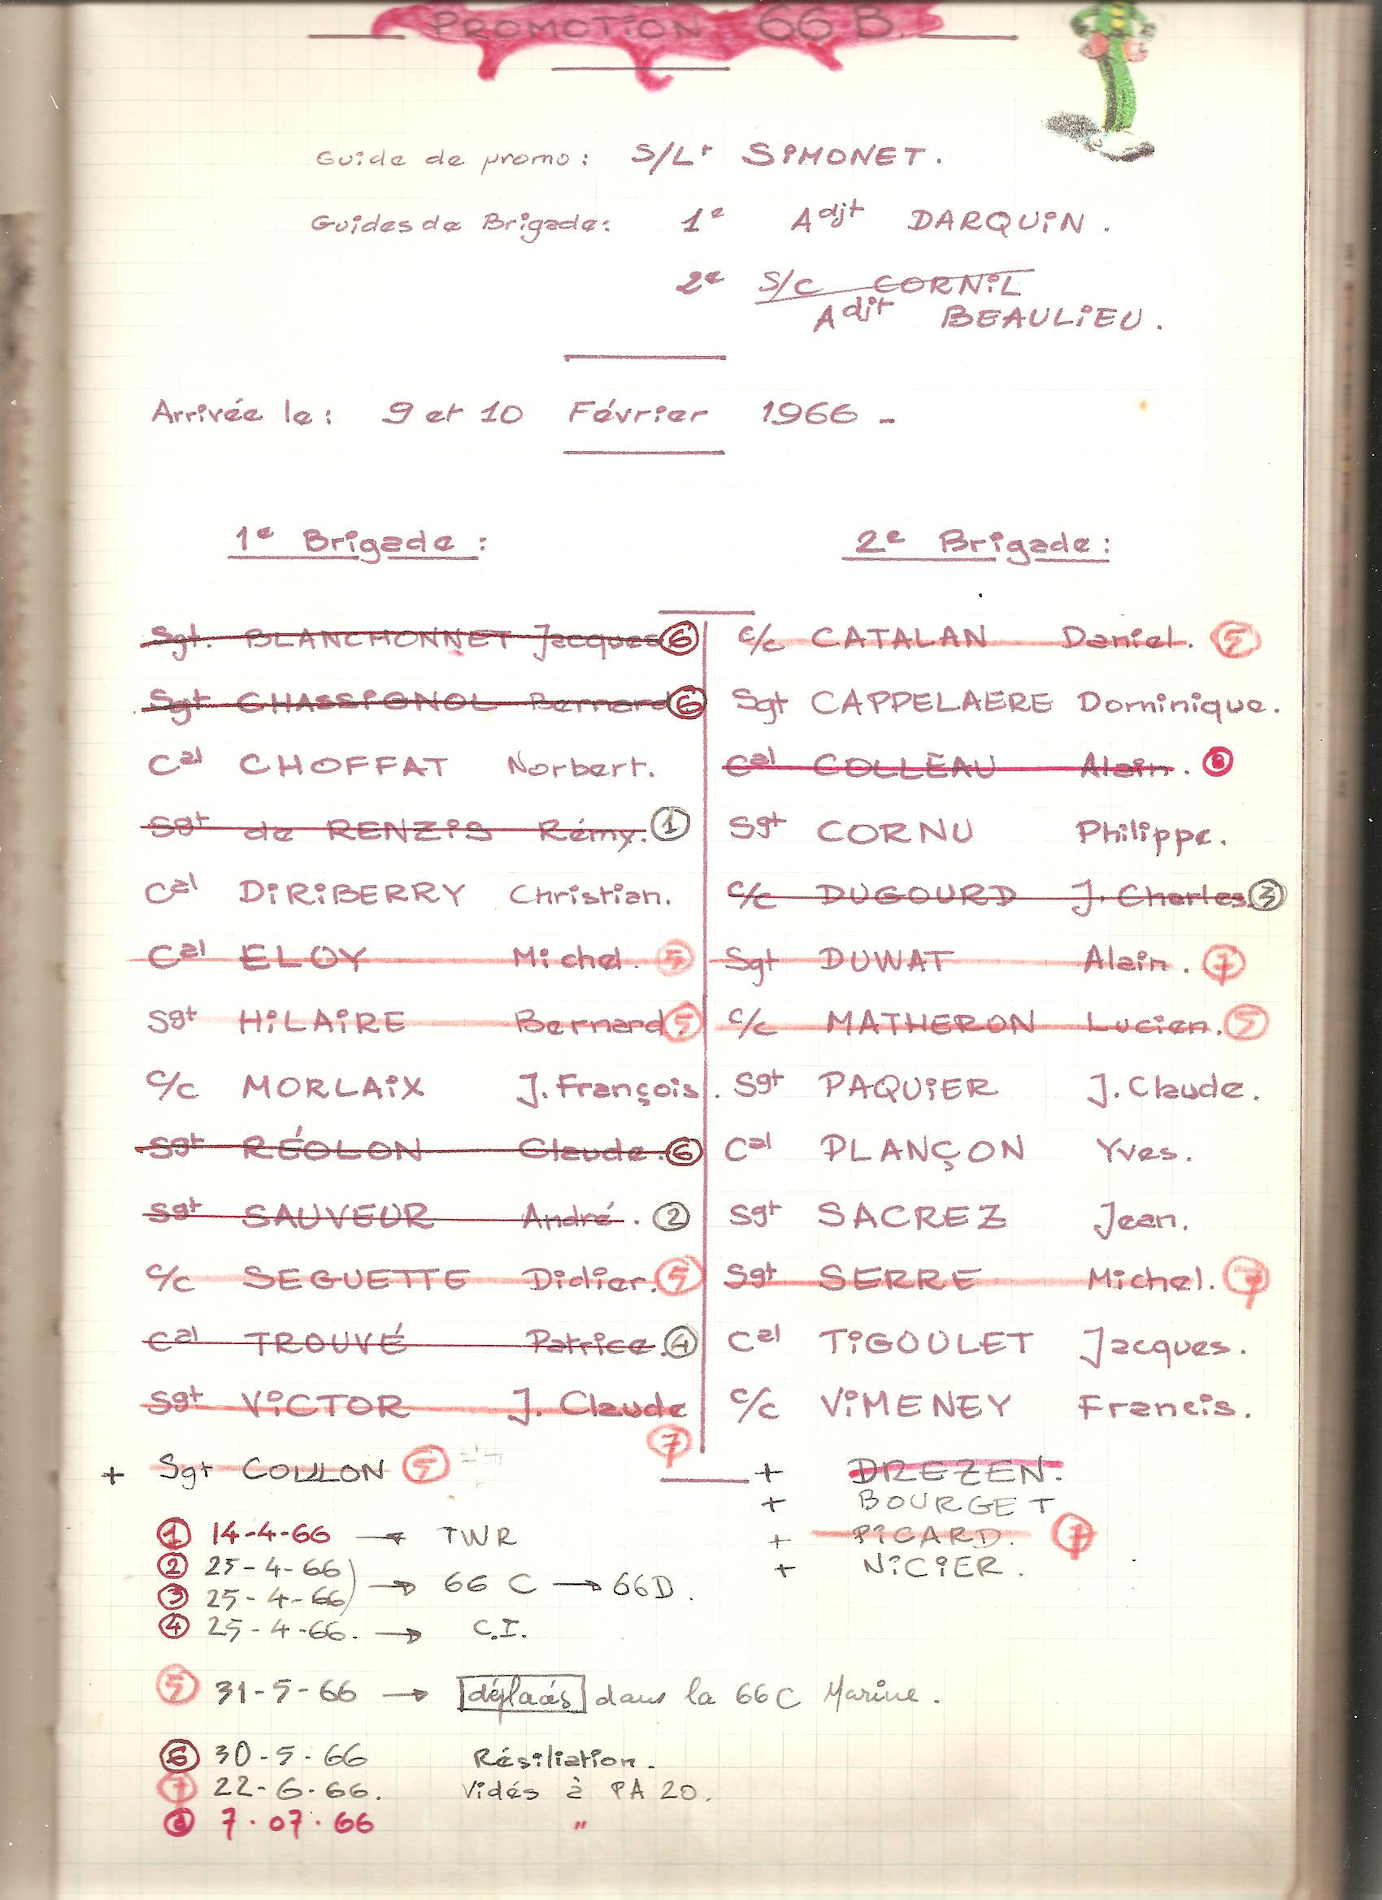 PROMOTION 66 B.
Guide de promo : S/Lt SIMONET.
Guides de Brigade : 1e Adjt DARQUIN.
2e S/C CORNIL
Adjt BEAULIEU.
Arrivée le : 9 et 10 Février 1966 -
1e Brigade :
2e Brigade :
Sgt. BLANCHONNET Jacques 6
Sgt CHASSIGNOL Bernard 6
Cal CHOFFAT Norbert.
Sgt de RENZIS Rémy. 1
Cal DIRIBERRY Christian.
Cal ELOY Michel. 5
Sgt HILAIRE Bernard 5
C/C MORLAIX J. François.
Sgt RÉOLON Claude. 6
Sgt SAUVEUR André. 2
C/C SEGUETTE Didier. 5
Cal TROUVÉ Patrice. 4
Sgt VICTOR J. Claude
7
+ Sgt COULON 5
C/C CATALAN Daniel. 5
Sgt CAPPELAERE Dominique.
Cal COLLEAU Alain. 8
Sgt CORNU Philippe.
C/C DUGOURD J. Charles 3
Sgt DUWAT Alain. 7
C/C MATHERON Lucien. 5
Sgt PAQUIER J. Claude.
Cal PLANÇON Yves.
Sgt SACREZ Jean.
Sgt SERRE Michel. 7
Cal TIGOULET Jacques.
C/C VIMENEY Francis.
+ DREZEN.
+ BOURGET
+ PICARD. 7
+ NICIER.
1 14-4-66 → TWR
2 25-4-66
3 25-4-66 → 66 C → 66D.
4 25-4-66. → C.I.
5 31-5-66 → déplacés dans la 66C Marine.
6 30-5-66 Résiliation.
7 22-6-66. Vidés à PA 20.
8 7.07.66 "